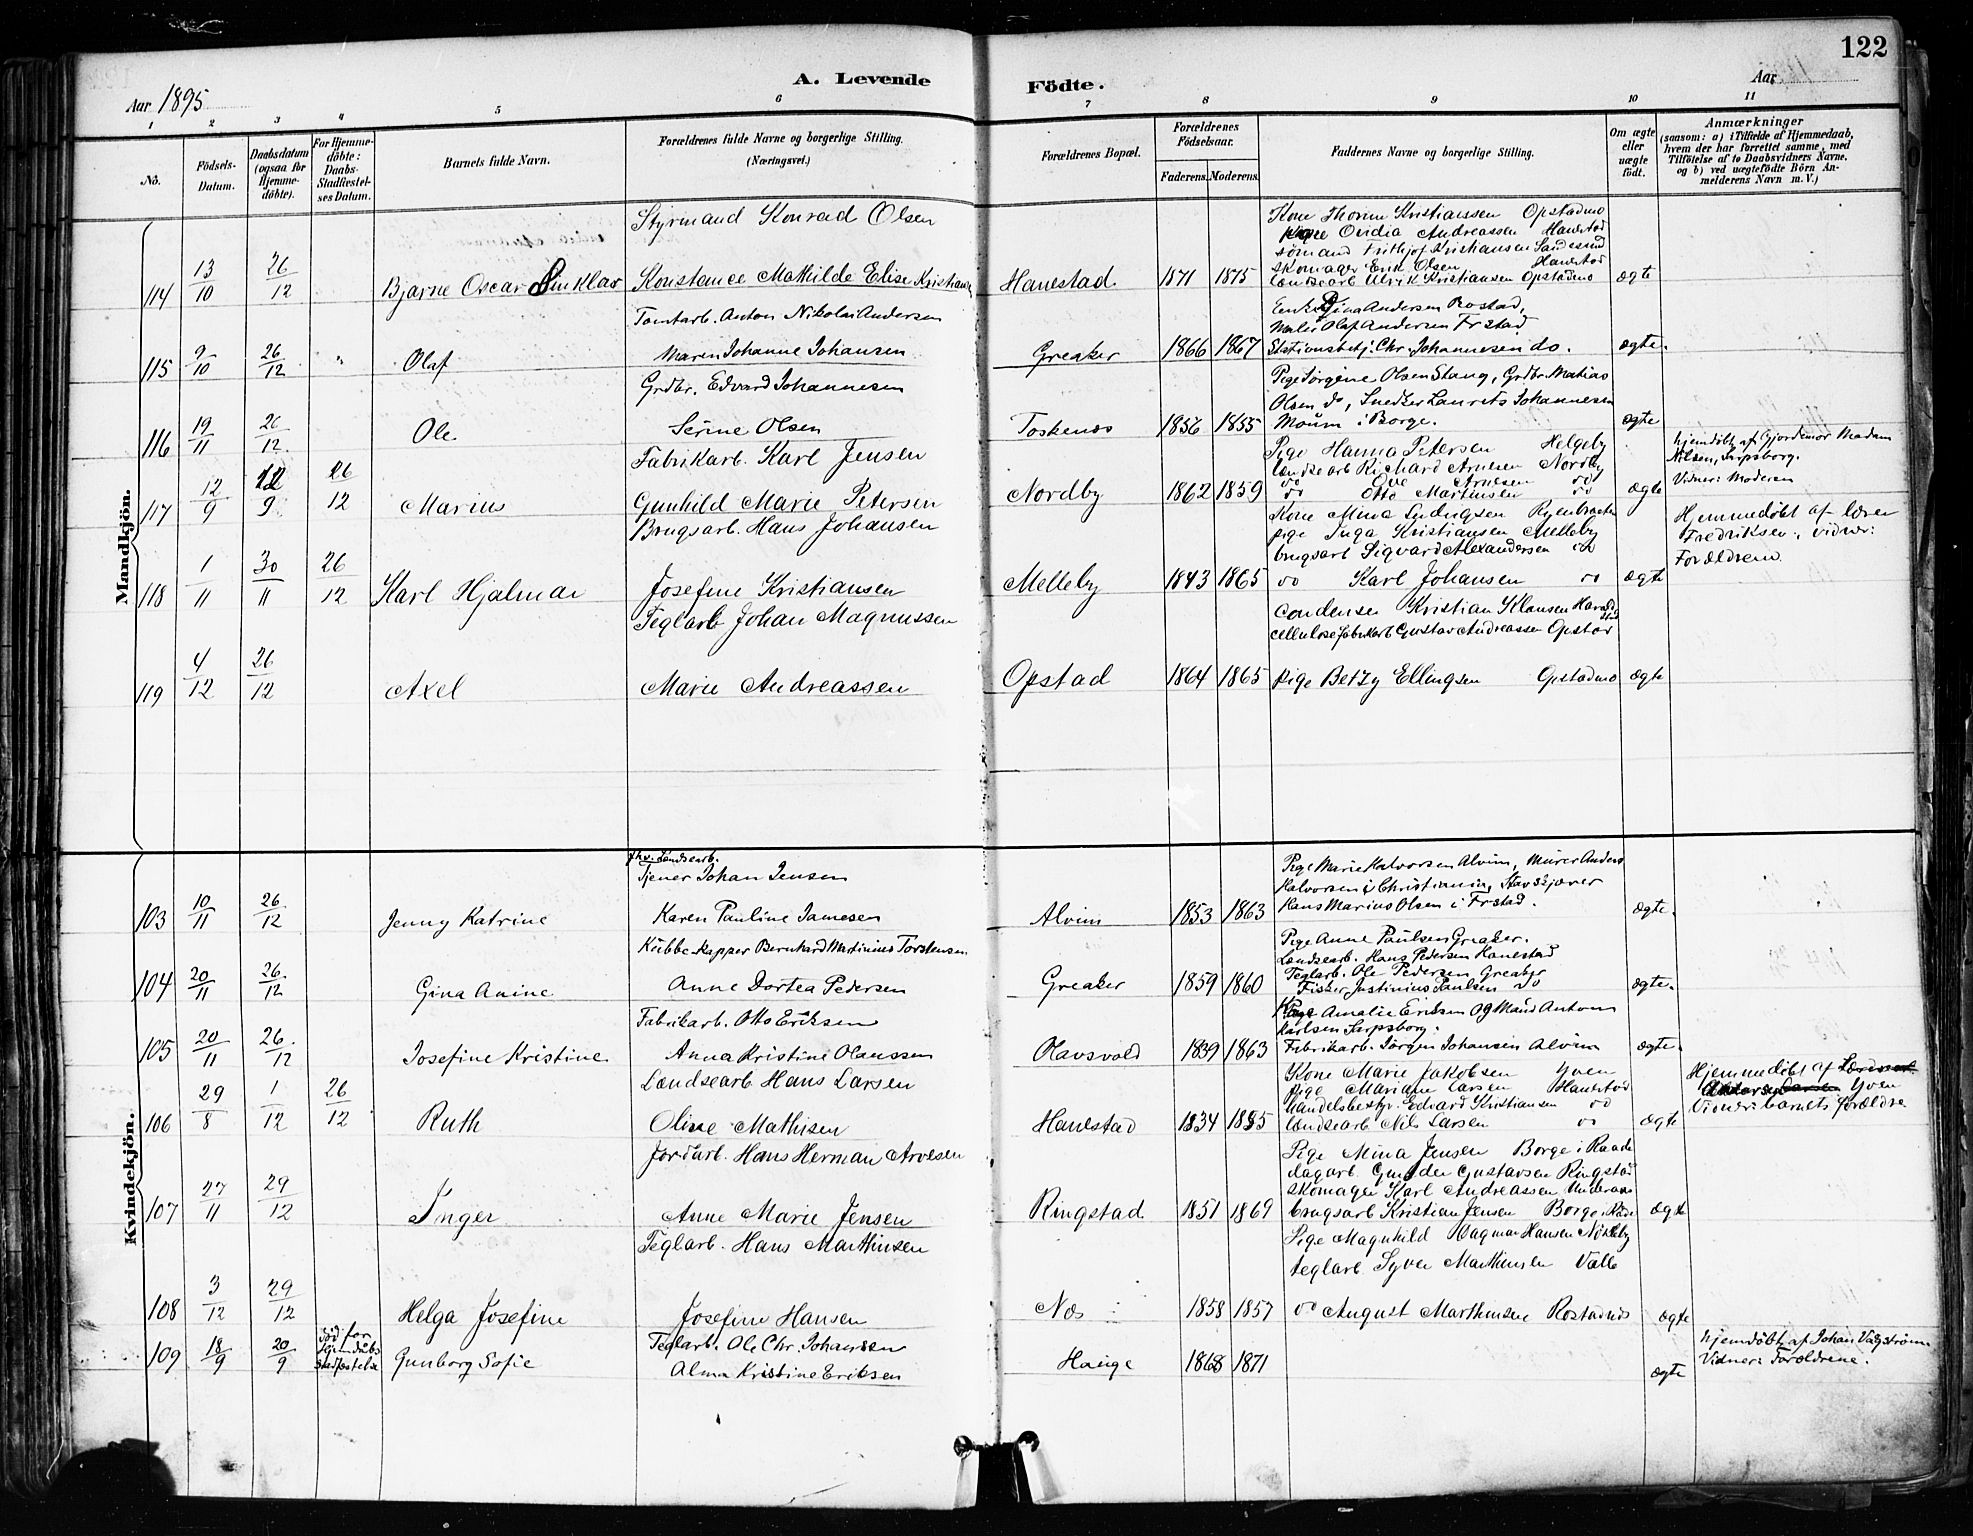 122
A. Levende Födte.
Aar 1895
Aar
1 2 3 4 5 6 7 8 9 10 11
No.
Födsels-Datum.
Daabsdatum (ogsaa for Hjemme-döbte).
For Hjemme-döbte: Daabs-Stadfæstel-ses Datum.
Barnets fulde Navn.
Forældrenes fulde Navne og borgerlige Stilling. (Næringsvei.)
Forældrenes Bopæl.
Forældrenes Födselsaar.
Faderens. Moderens.
Faddernes Navne og borgerlige Stilling.
Om ægte eller uægte födt.
Anmærkninger (saasom: a) i Tilfælde af Hjemmedaab, hvem der har forrettet samme, med Tilföielse af to Daabsvidners Navne. og b) ved uægtefödte Börn An-melderens Navn m. V.)
Mandkjön.
114 13/10 26/12 Bjarne Oscar Sinklar
Styrmand Konrad Olsen
Konstance Mathilde Elise Kristians
Hanestad 1871 1875
Kone Thorine Kristianssen Opstadmo
Ovidia Andreassen Hanestad
sømand Frithjof Kristiansen Sandesund
Skomager Erik Olsen Hanestad
Landsearb Ulrik Kristiansen Opstadmo
ægte
115 9/10 26/12 " Olaf
Tomtarb. Anton Nikolai Andersen
Maren Johanne Johansen
Greaker 1866 1867
Enke Gina Andersen Rostad,
Maler Olaf Andersen Frstad
Stationsbetj. Chr. Johannesen do.
ægte.
116 19/11 26/12 Ole
Grdbr. Edvard Johannesen
Serine Olsen
Toskenes 1856 1855
Pige Jørgine Olsen Stang, Grdbr. Matias
Olsen do, Snedker Laurets Johannesen
Moum i Borge.
ægte
117 12/9 12/9 26/12 Marius
Fabrikarb. Karl Jensen
Gunhild Marie Petersen
Nordby 1862 1859
Pige Hanna Petersen Helgeby
Landsearb Richard Arnesen Nordby
do Ove Arnesen do
do Otto Martinsen do
ægte
hjemdöbt af Gjordemor Madam
Nilsen, Sarpsborg.
Vidner: Moderen
118 1/11 30/11 26/12 Karl Hjalmar
Brugsarb. Hans Johansen
Josefine Kristiansen
Melleby 1843 1865
Kone Mina Ludvigsen
pige Inga Kristiansen Melleby
brugsarb Sigvard Alexandersen do
do Karl Johansen do
ægte
Hjemmedöbt af lærer
Fredriksen, vidner:
Forældrene
119 4/12 26/12 Axel
Teglarb Johan Magnussen
Marie Andreassen
Opstad 1864 1865
Kristian Klausen
cellulosefabrikarb Gustav Andreassen Opstad
pige Betzy Ellingsen Opstadmo
ægte
Kvindekjön.
103 10/11 26/12 Jenny Katrine
fhv. Landsearb.
Tjener Johan Jensen
Karen Pauline Jamesen
Alvim 1853 1863
Pige Marie Halvorsen Alvim, Murer Anders
Halvorsen i Christiania, Stavskjærer
Hans Marius Olsen i Frstad.
ægte.
104 20/11 26/12 Gina Anine
Kubbekapper Bernhard Martinius Torstensen
Anne Dortea Pedersen
Greaker 1859 1860
Pige Anne Paulsen Greaker.
Landsearb. Hans Pedersen Hanestad
Teglarb. Ole Pedersen Greaker
Fisker Justinius Paulsen do
ægte.
105 20/11 26/12 Josefine Kristine
Fabrikarb. Otto Eriksen
Anna Kristine Olaussen
Olavsvold 1839 1863
Amalie Eriksen og Mand Anton
Karlsen Sarpsborg.
Fabrikarb. Jörgen Johansen Alvim
ægte.
106 29/8 1/12 26/12 Ruth
Landsearb Hans Larsen
Oline Mathisen
Hanestad 1834 1855
Kone Marie Jakobsen Yven
pige Mariane Larsen Hanestad
Handelsbestyr. Edvard Kristiansen do
landsearb Nils Larsen do
ægte
Hjemmedöbt af
Yven
Vidner: barnets forældre
107 27/11 29/12 Inger
Jordarb. Hans Herman Arvesen
Anne Marie Jensen
Ringstad 1851 1869
Pige Mina Jensen Borge i Raade
dagarb. Gunder Gustavsen Ringstad
Skomager Karl Andreassen
brugsarb Kristian Jensen Borge i Råde
ægte
108 3/12 29/12 Helga Josefine
Teglarb. Hans Marthinsen
Josefine Hansen
Næs 1858 1857
Pige Magnhild Dagmar Hansen Nökleby
teglarb. Syver Marthinsen Valle
do August Marthinsen Rostadnes
ægte
109 18/9 20/9 Död för hjemdaabs stadfæstelse Gunborg Sofie
Teglarb. Ole Chr. Johansen
Alma Kristine Eriksen
Hauge 1868 1871
ægte
hjemdöbt af Johan Vagström
Vidner: Forældrene.